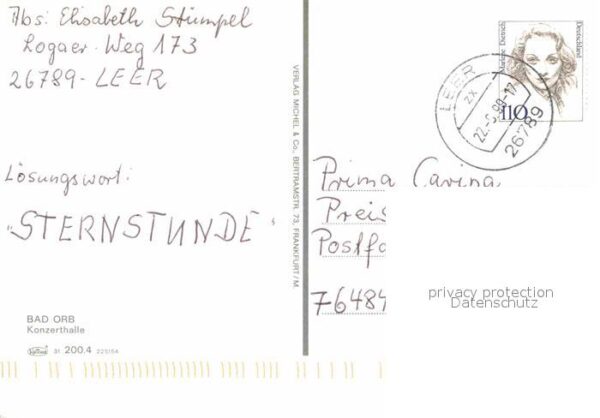 Abs: Elisabeth Stümpel
Logaer Weg 173
26789-LEER
Lösungswort:
"STERNSTUNDE"
BAD ORB
Konzerthalle
31 200.4 225154
VERLAG MICHEL & Co. BERTRAMSTR. 73, FRANKFURT/M.
Marlene Dietrich
Deutschland
110
LEER
ZX
26789
Prima Carina
Preis
Postfa
76484
privacy protection
Datenschutz